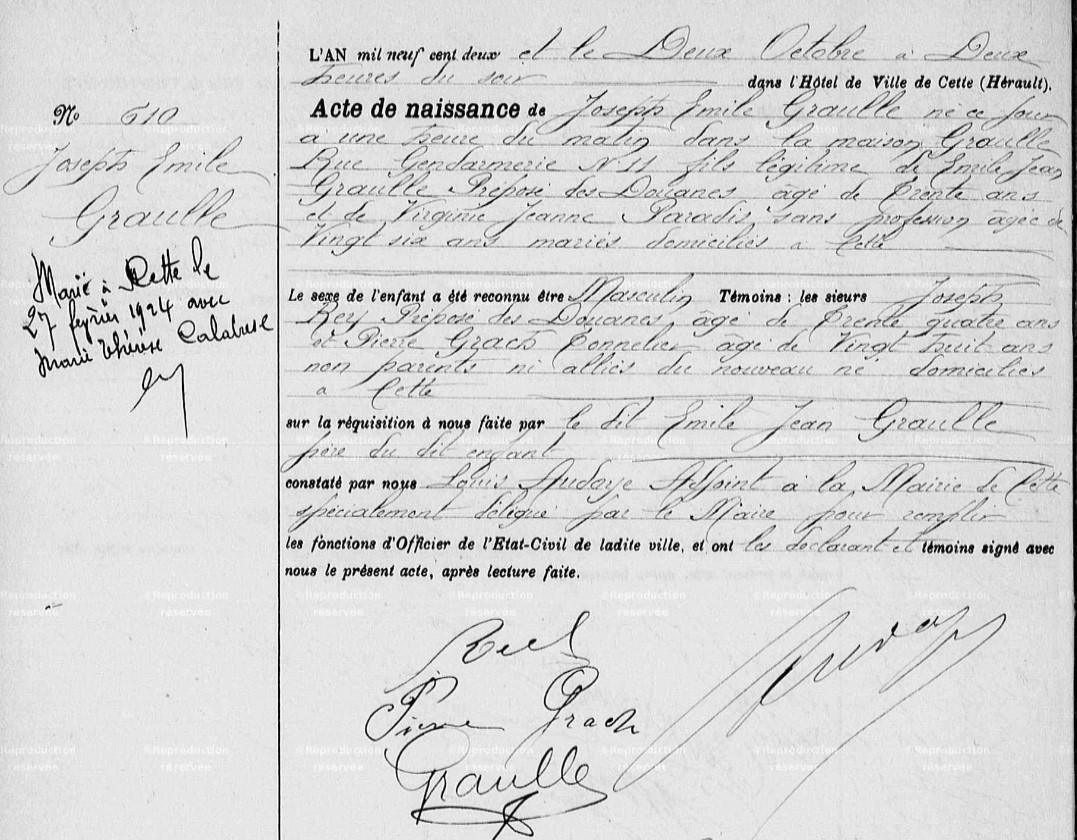 L'AN mil neuf cent deux et le Deux Octobre à Deux
heures du soir dans l'Hôtel de Ville de Cette (Hérault),
Acte de naissance de Joseph Emile Graulle né ce jour
à une heure du matin dans la maison Graulle
Rue Gendarmerie N 11 fils légitime de Emile Jean
Graulle Préposé des Douanes âgé de Trente ans
et de Virginie Jeanne Paradis sans profession âgée de
Vingt six ans mariés domiciliés à Cette
Le sexe de l'enfant a été reconnu être Masculin Témoins : les sieurs Joseph
Rey Préposé des Douanes, âgé de Trente quatre ans
et Pierre Grach Tonnelier âgé de Vingt huit ans
non parents ni alliés du nouveau né domiciliés
à Cette
sur la réquisition à nous faite par le dit Emile Jean Graulle
père du dit enfant
constaté par nous Louis Audoye Adjoint à la Mairie de Cette
spécialement délégué par le Maire pour remplir
les fonctions d'Officier de l'Etat-Civil de ladite ville, et ont les déclarant et témoins signé avec
nous le présent acte, après lecture faite.
Pierre Grach
Graulle
No 610
Joseph Emile
Graulle
Marié à Cette le
27 février 1924 avec
Marie Thérèse Calabrese
©Reproduction
réservée